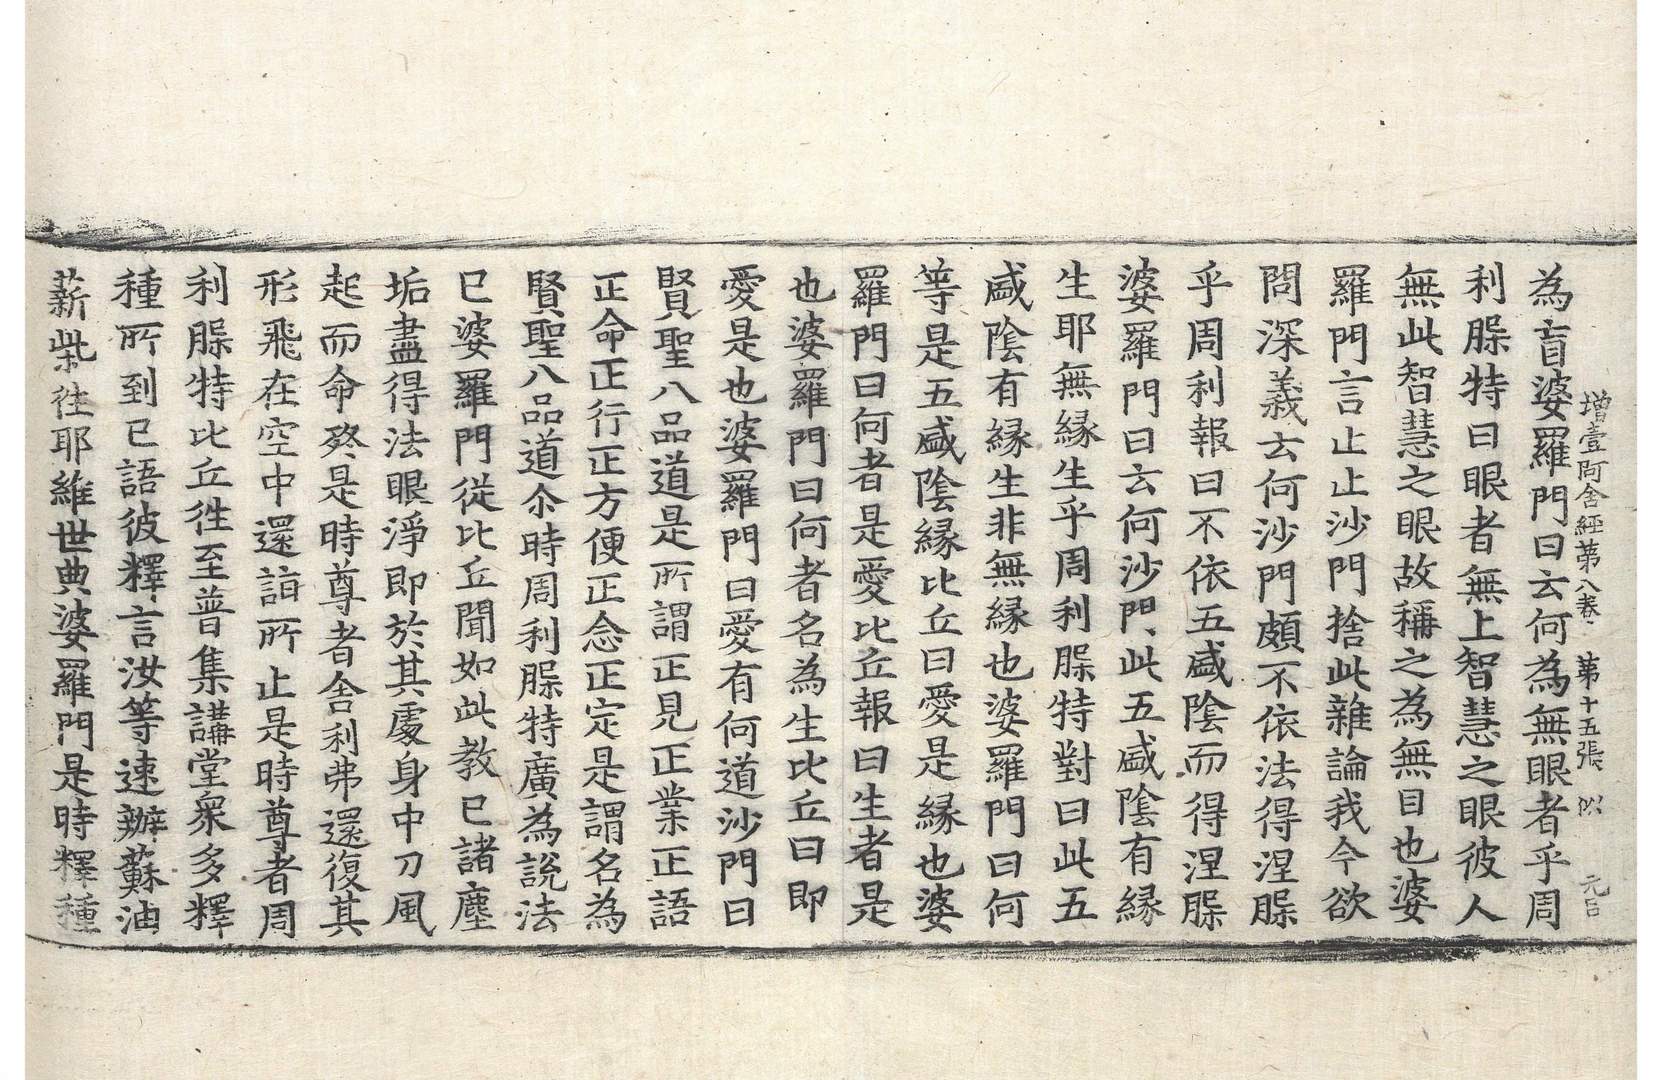 增壹阿含經第八卷 第十五張 似 元吕
為盲婆羅門曰云何為無眼者乎周
利腬特曰眼者無上智慧之眼彼人
無此智慧之眼故稱之為無目也婆
羅門言止止沙門捨此雜論我今欲
問深義云何沙門頗不依法得涅腬
乎周利報曰不依五盛陰而得涅腬
婆羅門曰云何沙門此五盛陰有緣
生耶無緣生乎周利腬特對曰此五
盛陰有緣生非無緣也婆羅門曰何
等是五盛陰緣比丘曰愛是緣也婆
羅門曰何者是愛比丘報曰生者是
也婆羅門曰何者名為生比丘曰即
愛是也婆羅門曰愛有何道沙門曰
賢聖八品道是所謂正見正業正語
正命正行正方便正念正定是謂名為
賢聖八品道尒時周利腬特廣為說法
已婆羅門從比丘聞如此教已諸塵
垢盡得法眼淨即於其處身中刀風
起而命終是時尊者舍利弗還復其
形飛在空中還詣所止是時尊者周
利腬特比丘徃至普集講堂衆多釋
種所到已語彼釋言汝等速辦蘇油
薪柴徃耶維世典婆羅門是時釋種